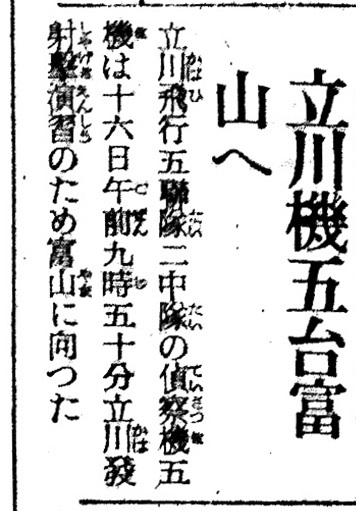 立川機五台富
山へ
立川飛行五聯隊二中隊の偵察機五
機は十六日午前九時五十分立川發
射擊演習のため富山に向つた